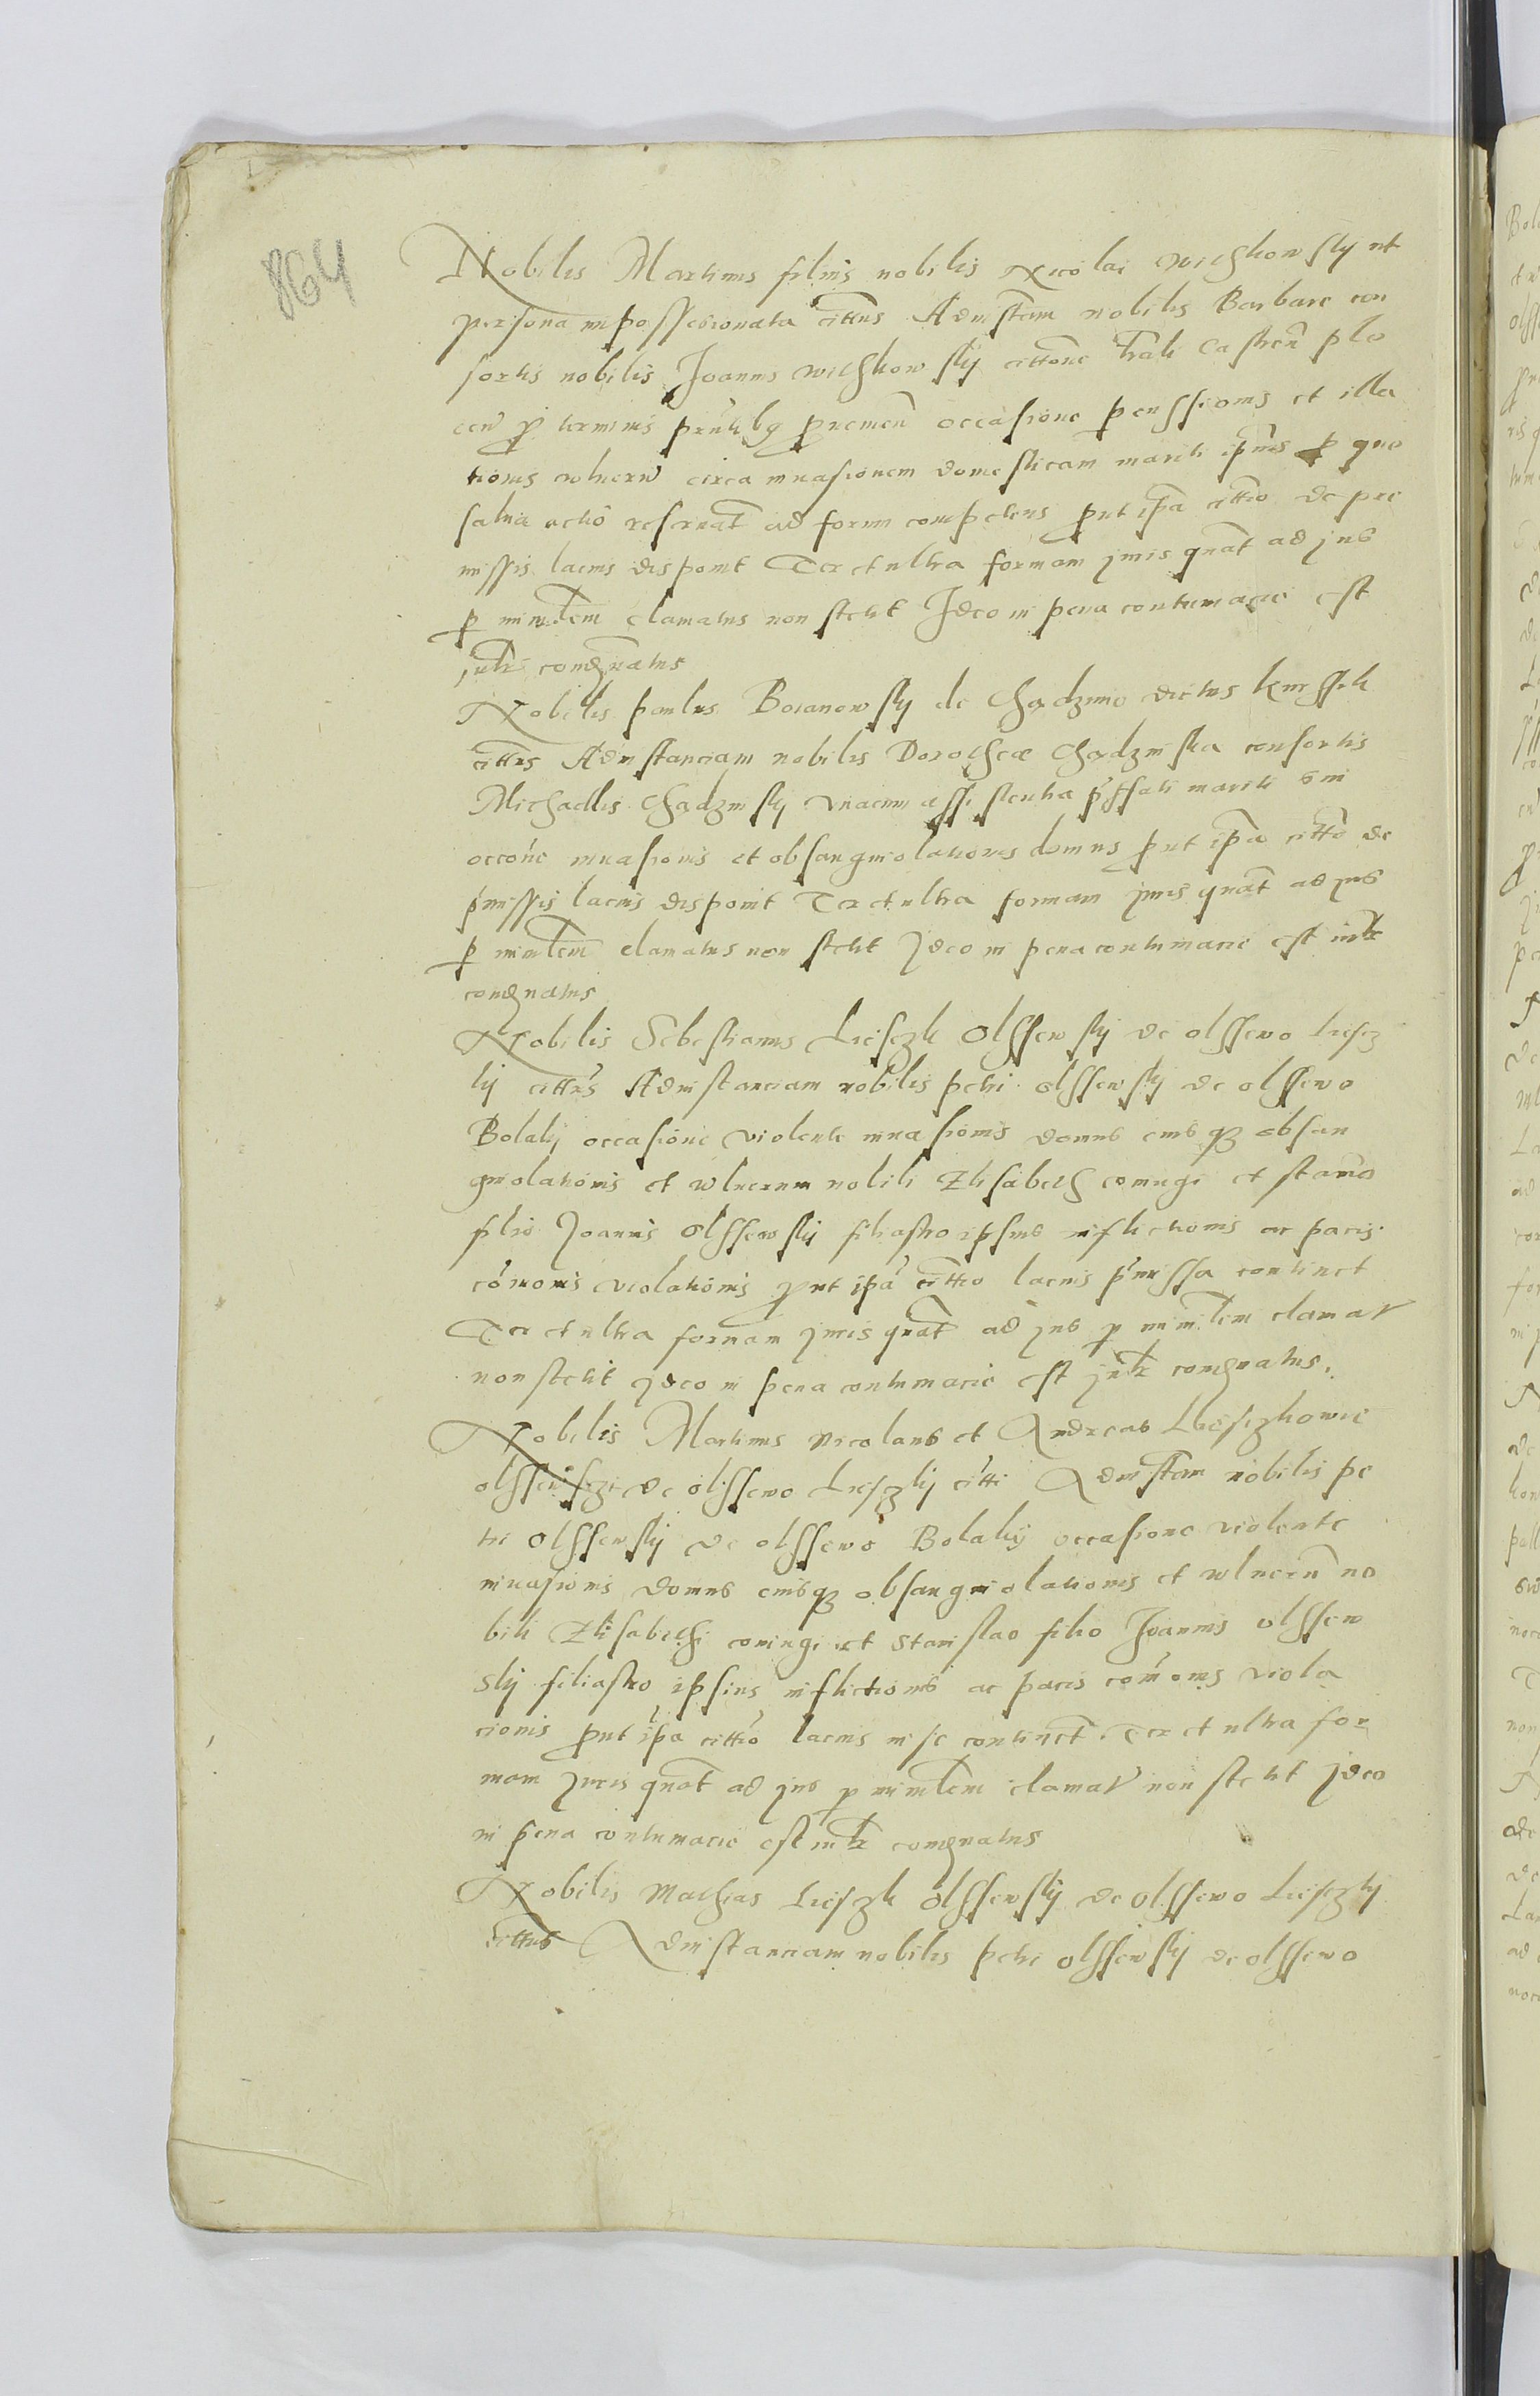 864
Nobilis Martinus filius nobilis Nicolai Wilhkowsky ut
persona impossesionata cittus Ad instam nobilis Barbare con
sortis nobilis Joannis Wilhkowsky cittone trali Castren plo
cen p terminis prntibq pnemen occasione percussionis et illa
tionis vulnerū circa invasionem domesticam mariti ipius p quo
salva actio reservat ad forum competens put ipa cittio de pre
missis lacius disponit Ter et ultra formam juris quat ad jus
p ministem clamatus non stetit Ideo in pena contumacie est
jutr comdnatus
Nobilis paulus Boianowsky de Chadzino dictus
cittus Ad instanciam nobilis Dorothee Chadzinska consortis
Michaelis Chadzinsky unacum assistentia pffati mariti sui
occone invasionis et obsanguiolationis domus put ipa citto de
pmissis lacius disponit Ter et ultra formam juris quat ad jus
p ministem clamatus non stetit Ideo in pena contumacie est iutr
comdnatus
Nobilis Sebestianus Liesczk Olssewsky de olssewo Liescz
ky cittus Ad instanciam nobilis petri olssewsky de olssewo
Bolaky occasione violente invasionis domus eiusqz obsan
guiolationis et vulnerum nobili Elisabeth coniugi et stanio
filio Joannis Olssewsky filiastro ipsius inflictionis ac pacis
comonis violationis put ipa cittio lacius pmissa continet
Ter et ultra formam juris quat ad jus p ministem clamat
non stetit ideo in pena contumacie est jutr comdnatus.
Nobilis Martinus Nicolaus et Andreas Liesczkowie
olssewsczi de olssewo Liesczky citti Ad instam nobilis pe
tri Olssewsky de olssewo Bolaky occasione violente
invasionis domus eiusqz obsanguiolationis et vulnerū no
bili Elisabethi coniugi et Stanislao filio Joannis Olssew
sky filiastro ipsius inflictionis ac pacis comonis viola
cionis put ipa cittio lacius in se continet Ter et ultra for
mam juris quat ad jus p ministem clamat non stetit ideo
in pena contumacie est iutr comdnatus
Nobilis Mathias Liesczk Olssewsky de Olssewo Liesczky
cittus Ad instanciam nobilis petri olssewsky de olssewo